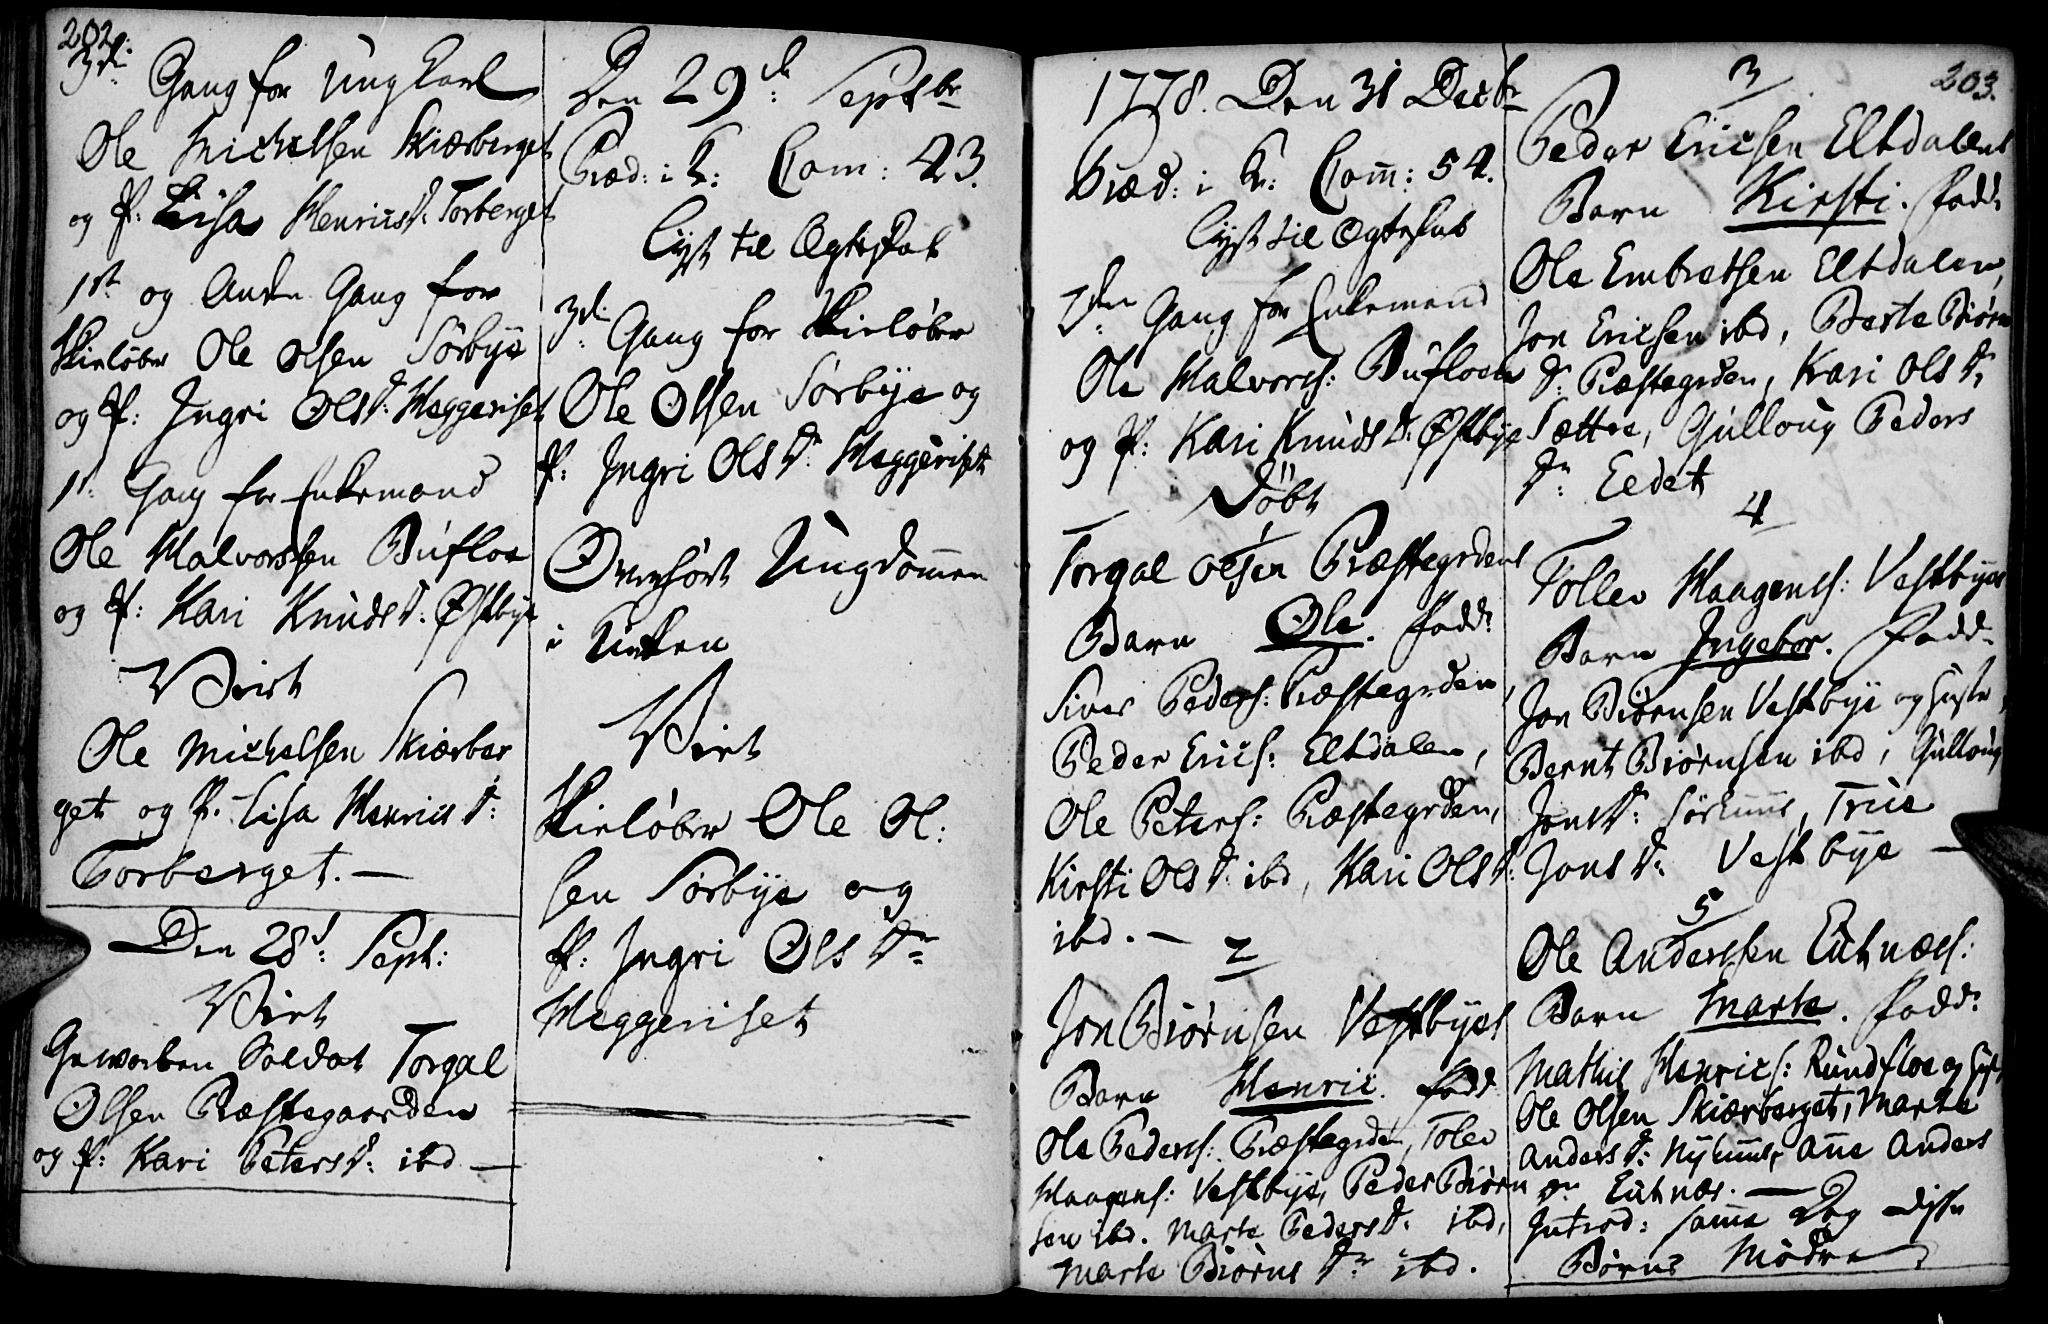 202.
3d: Gang for Ungkarl
Ole Michelsen Skiærberget
og P: Lisa Henricsd: Torberget
1st og Anden Gang for
Skieløber Ole Olsen Sørbye
og P: Ingri Olsd: Heggeriset
1st: Gang for Enkemand
Ole Halvorssen Bufloe
og P: Kari Knudsd: Østbye
Viet
Ole Michelsen Skiærber
get og P. Lisa Henricsd:
Torberget. —
Den 28d: Sept:
Viet
Geworben Soldat Torgal
Olsen Præstegaarden
og P: Kari Petersd: ibd —
Den 29de: Septbr
Præd: i K: Com: 43.
Lyst til Ægteskab
3d: Gang for Skieløber
Ole Olsen Sørbye og
P: Ingri Olsdr: Heggeriset
Overhørt Ungdommen
i Kirken
Viet
Skieløber Ole Ol:
sen Sørbye og
P: Ingri Olsdr
Heggeriset
1778. Den 31 Decbr
Præd: i K: Com: 54.
Lyst til Ægteskab
2den Gang for Enkemand
Ole Halvorss: Bufloen
og P: Kari Knudsd: Østbye
Døbt
1
Torgal Olsen Præstegrdens
Barn Ole. fadd:
Siver Peders: Præstegrden,
Peder Erics: Eltdalen,
Ole Peters: Præstegrden,
Kirsti Olsd: ibd, Kari Olsd:
ibd. —
2
Jon Biørnsen Vestbyes
Barn Henric. fadd
Ole Peders: Præstegrden, Tolev
Haagens: Vestbye, Peder Biørn
sen ibd. Marte Pedersd: ibd,
Marte Biørnsdr: ibd.
203.
3
Peder Ericsen Eltdalens
Barn Kirsti. fadd:
Ole Embretsen Eltdalen,
Jon Ericsen ibd, Berte Biørn
d: Præstegrden, Kari Olsd:
Sættre, Gulloug Peders
dr: Eedet
4
Tollev Haagens: Vestbyes
Barn Ingebor. fadd:
Jon Biørnsen Vestbye og Hustr,
Bernt Biørnsen ibd, Gulloug
Jonsd: Sørhuus, True
Jonsd: Vestbye —
5
Ole Anderssen Lutnæs:
Barn Marte. fadd:
Mathis Henrics: Rundfloe og Hust,
Ole Olsen Skiærberget, Marte
Andersd: Nyhuus, Anne Anders
dr Lutnæs. —
Introd: samme Dag disse
Børns Mødre